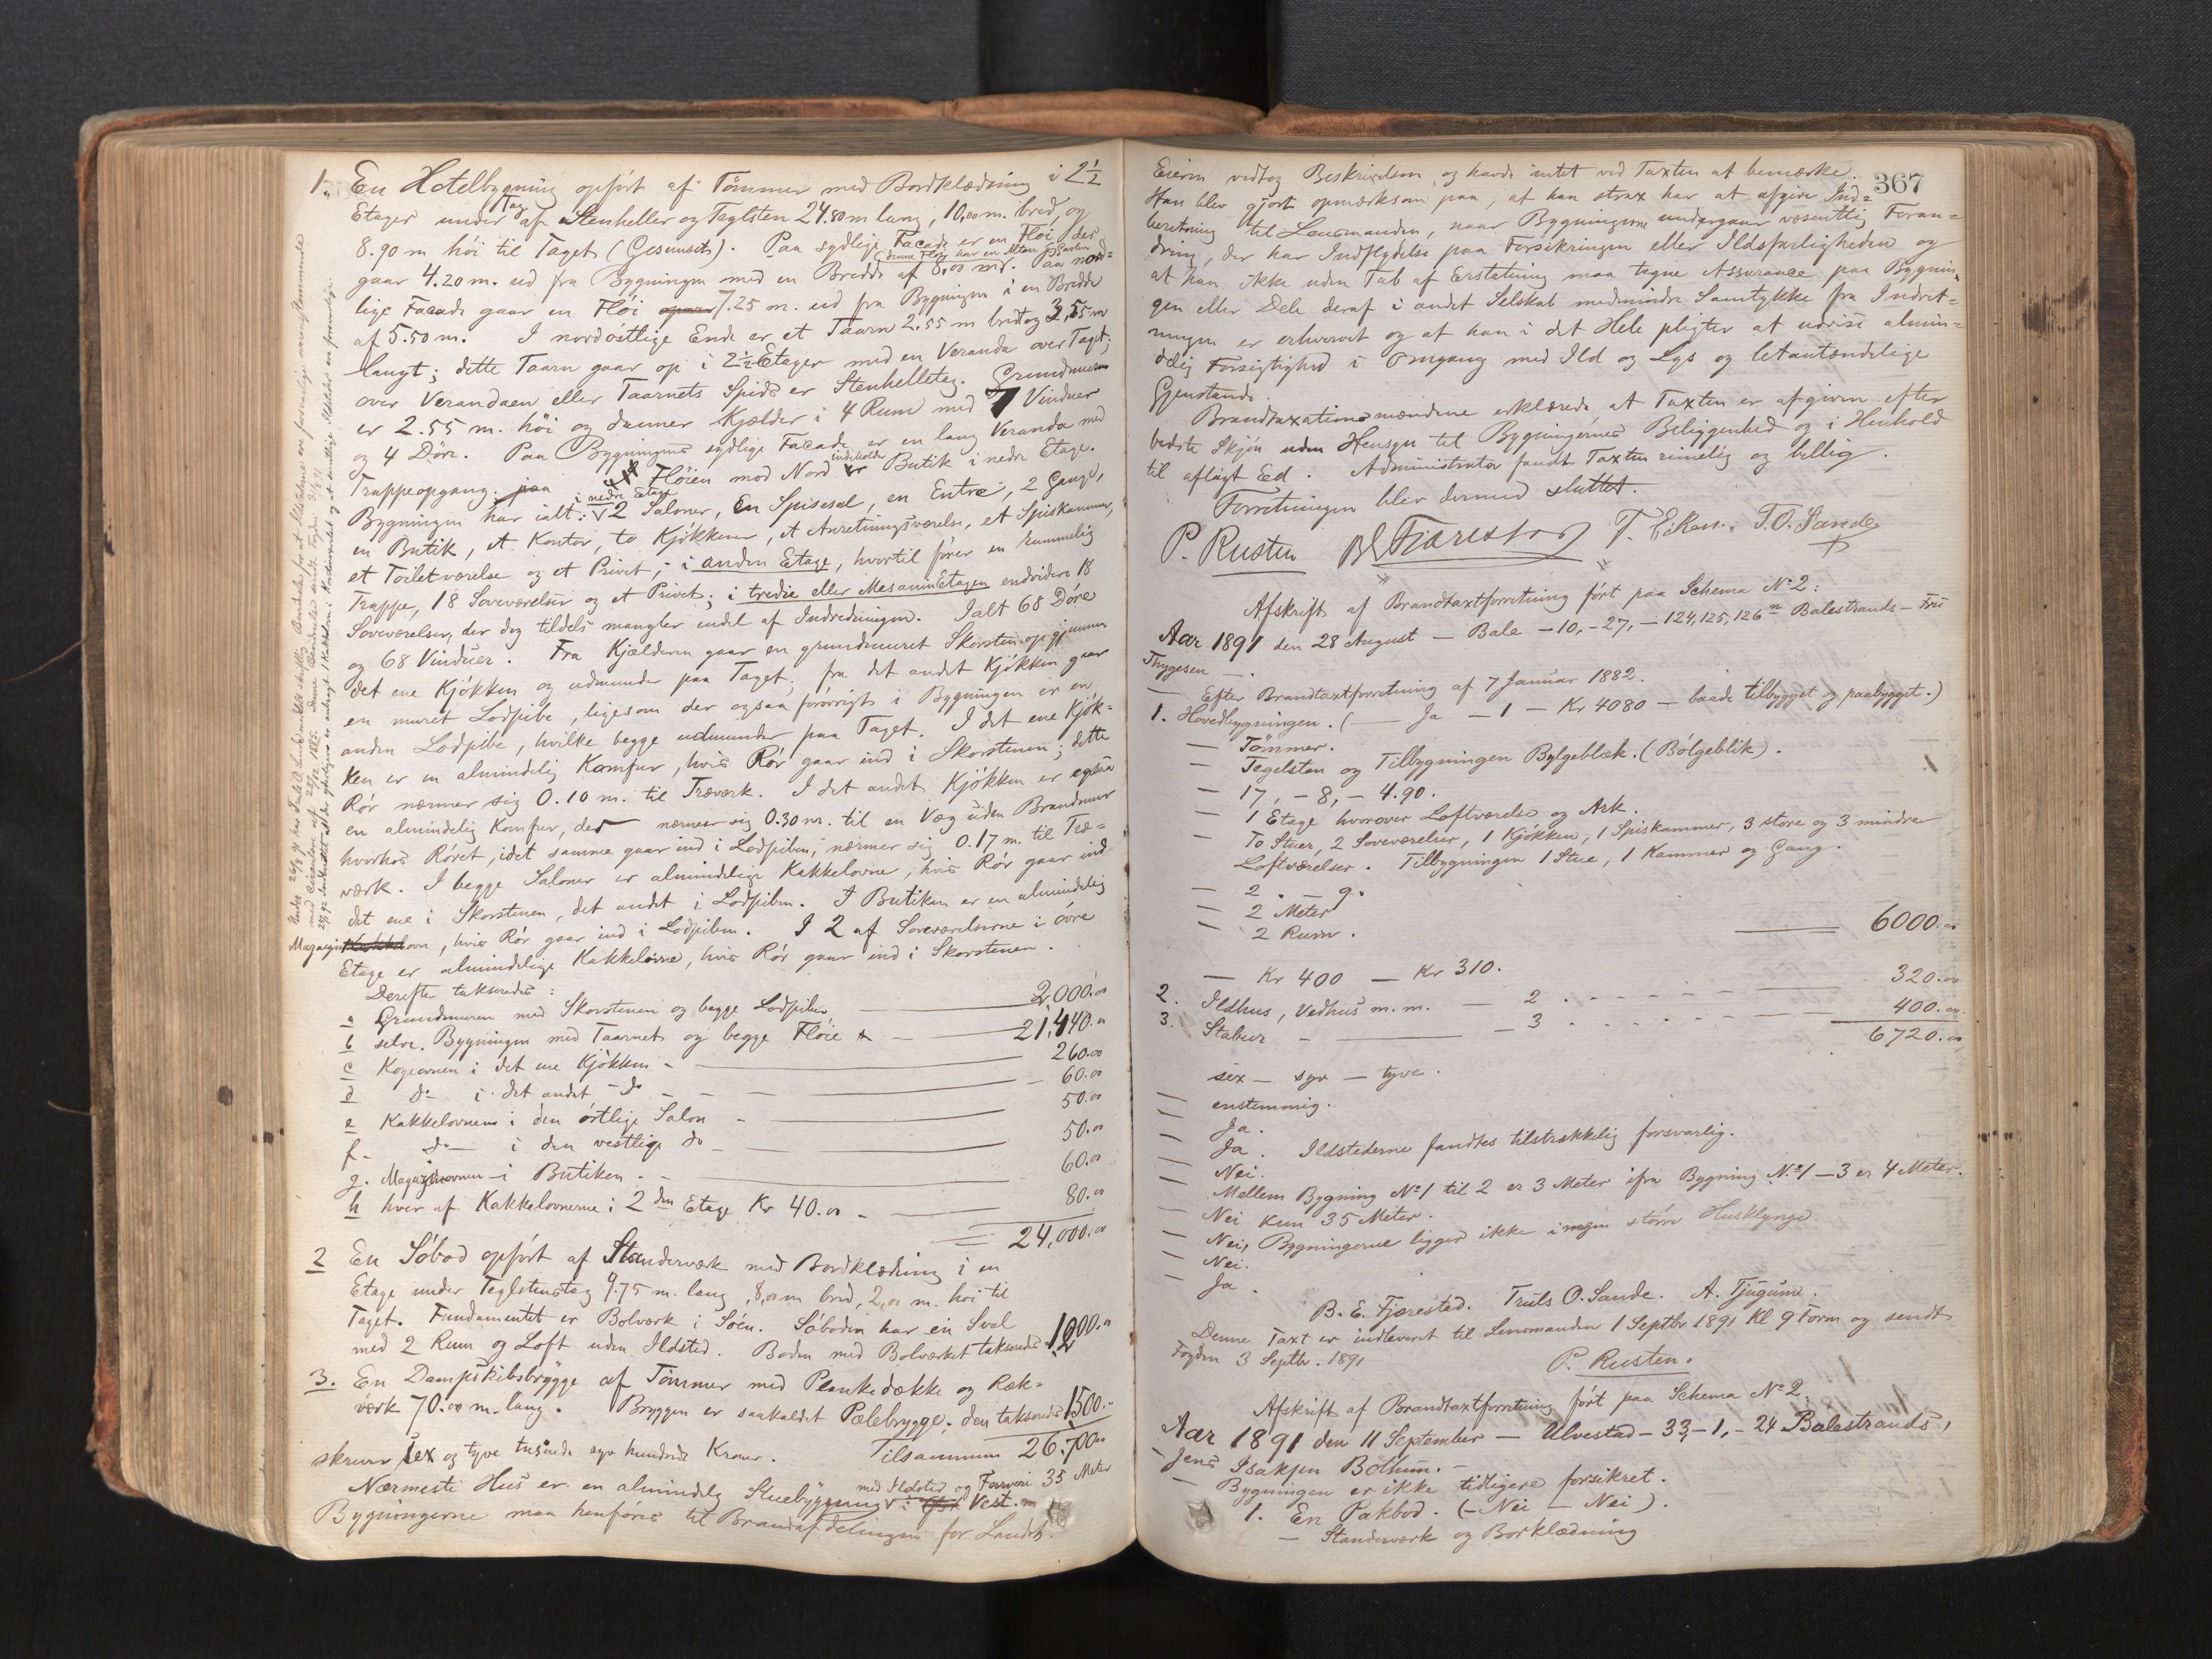 1. En Hotelbygning opført af Tømmer med Bordklædning i 2½
Etager under Tag af Stenheller og Teglsten 24.80 m lang, 10,00 m. bred, og
8.90 m høi til Taget (Gesimset). Paa sydlige Facade er en Fløi, der
gaar 4.20 m. ud fra Bygningen med en Bredde af 8,00 m. Paa nord=
(denne Fløi har en Altan paa Enden
lige Facade gaar en Fløi 7.25 m. ud fra Bygningen i en Bredde
af 5.50 m. I nordøstlige Ende er et Taarn 2.55 m bredt og 3,55 m
langt; dette Taarn gaar op i 2½ Etager med en Veranda over Taget;
over Verandaen eller Taarnets Spids er Stenhelletag. Grundmuren
er 2.55 m. høi og danner Kjælder i 4 Rum med 7 Vinduer
og 4 Døre. Paa Bygningens sydlige Facade er en lang Veranda med
Trappeopgang. paa Fløien mod Nord indeholder Butik i nedre Etage.
Bygningen har ialt: i nedre Etage 2 Saloner, En Spisesal, en Entre, 2 Gange,
en Butik, et Kontor, to Kjøkkener, et Anretningsværelse, et Spiskammer,
et Toiletværelse og et Privet; i anden Etage, hvortil fører en rummelig
Trappe, 18 Soveværelser og et Privet; i tredie eller MesaninEtagen endvidere 18
Soveværelser, der dog tildels mangler endel af Indredningen. Ialt 68 Døre
og 68 Vinduer. Fra Kjælderen gaar en grundmuret Skorsten op gjennem
det ene Kjøkken og udmunder paa Taget; fra det andet Kjøkken gaar
en muret Lodpibe, ligesom der ogsaa forøvrigt i Bygningen er en
anden Lodpibe, hvilke begge udmunder paa Taget. I det ene Kjøk=
ken er en almindelig Komfur, hvis Rør gaar ind i Skorstenen; dette
Rør nærmer sig 0.10 m. til Træverk. I det andet Kjøkken er ogsaa
en almindelig Komfur, der nærmer sig 0.30 m. til en Væg uden Brandmur
hvorhos Røret, idet samme gaar ind i Lodpiben, nærmer sig 0.17 m. til Træ=
værk. I begge Saloner er almindelige Kakkelovne, hvis Rør gaar ind
det ene i Skorstenen, det andet i Lodpiben. I Butiken er en almindelig
Magasinovn, hvis Rør gaar ind i Lodpiben. I 2 af Soveværelserne i øvre
Etage er almindelige Kakkelovne, hvis Rør gaar ind i Skorstenen.
Derefter takseredes:
a Grundmuren med Skorstenen og begge Lodpiber 2,000.00
b selve Bygningen med Taarnet og begge Fløie 21,440.00
c Kogeovnen i det ene Kjøkken 260.00
d do i det andet do 60.00
e Kakkelovnen i den østlige Salon 50.00
f. do i den vestlige do 50.00
g. Magasinovnen i Butiken 60.00
h hver af Kakkelovnerne i 2den Etage Kr 40.00 80.00
24,000.00
2 En Søbod opført af Standerværk med Bordklædning i en
Etage under Teglstenstag 9.75 m. lang, 8,00 m bred, 2,00 m. høi til
Taget. Fundamentet er Bolværk i Søen. Søboden har en Sval
med 2 Rum og Loft uden Ildsted. Boden med Bolværket takseredes 1200.00
3. En Dampskibsbrygge af Tømmer med Plankedække og Ræk=
værk 70.00 m. lang. Bryggen er saakaldet Pælebrygge; den takseredes 1500.-
Tilsammen 26.700.00
skriver sex og tyve tusinde syv hundrede Kroner.
Nærmeste Hus er en almindelig Stuebygning med Ildsted og Farveri 35 Meter
i Vest.
Bygningerne maa henføres til Brandafdelingen for Landet.
367
Eieren vedtog Beskrivelsen og havde intet ved Taxten at bemærke.
Han blev gjort opmærksom paa, at han strax har at afgive Ind=
beretning til Lensmanden, naar Bygningerne undergaar væsentlig Foran=
dring, der har Indflydelse paa Forsikringen eller Ildsfarligheden og
at han ikke uden Tab af Erstatning maa tegne Assurance paa Bygnin=
gen eller Dele deraf i andet Selskab medmindre Samtykke fra Indret=
ningen er erhvervet og at han i det Hele pligter at udvise almin=
delig Forsigtighed i Omgang med Ild og Lys og letantændelige
Gjenstande.
Brandtaxationsmændene erklærede, at Taxten er afgiven efter
bedste Skjøn uden Hensyn til Bygningernes Beliggenhed og i Henhold
til aflagt Ed. Administrator fandt Taxten rimelig og billig.
Forretningen blev dermed sluttet.
P. Rusten B E Fjærestad T. O. Sande
Afskrift af Brandtaxtforretning ført paa Schema No 2:
Aar 1891 den 28 August — Bale — 10, — 27, — 124, 125, 126 n Balestrands — Fris
Thygesen —.
— Efter Brandtaxtforretning af 7 Januar 1882.
1. Hovedbygningen. (— Ja — 1 — Kr 4080 — baade tilbygget og paabygget.)
— Tømmer.
— Tegelsten og Tilbygningen Bylgeblæk. (Bølgeblik).
— 17, — 8, — 4.90.
— 1 Etage hvorover Loftværelse og Ark.
— To Stuer, 2 Soveværelser, 1 Kjøkken, 1 Spiskammer, 3 store og 3 mindre
Loftværelser. Tilbygningen 1 Stue, 1 Kammer og Gang.
— 2. — 9.
— 2 Meter
— 2 Rum. 6000.00
— Kr 400 — Kr 310.
2. Ildhus, Vedhus m.m. — 2 320.00
3. Stabur — 3 400.00
6720.00
sex — syv — tyve.
— enstemmig.
— Ja.
— Ja. Ildstederne fandtes tilstrækkelig forsvarlig.
— Nei.
— Mellem Bygning No 1 til 2 er 3 Meter ifra Bygning No 1 — 3 er 4 Meter.
— Nei kun 35 Meter.
— Nei, Bygningerne ligger ikke i nogen større Husklynge.
— Nei.
— Ja.
B. E. Fjærestad. Truls O. Sande. A. Tjugum.
Denne Taxt er indleveret til Lensmanden 1 Septbr 1891 Kl 9 Form og sendt
Fogden 3 Septbr. 1891
P. Rusten.
Afskrift af Brandtaxtforretning ført paa Schema No 2.
Aar 1891 den 11 September — Ulvestad — 33, — 1, — 24 Balestrands,
— Jens Isaksen Bøthun. —
— Bygningen er ikke tidligere forsikret.
1. En Pakbod. (— Nei — Nei).
— Standerværk og Borklædning